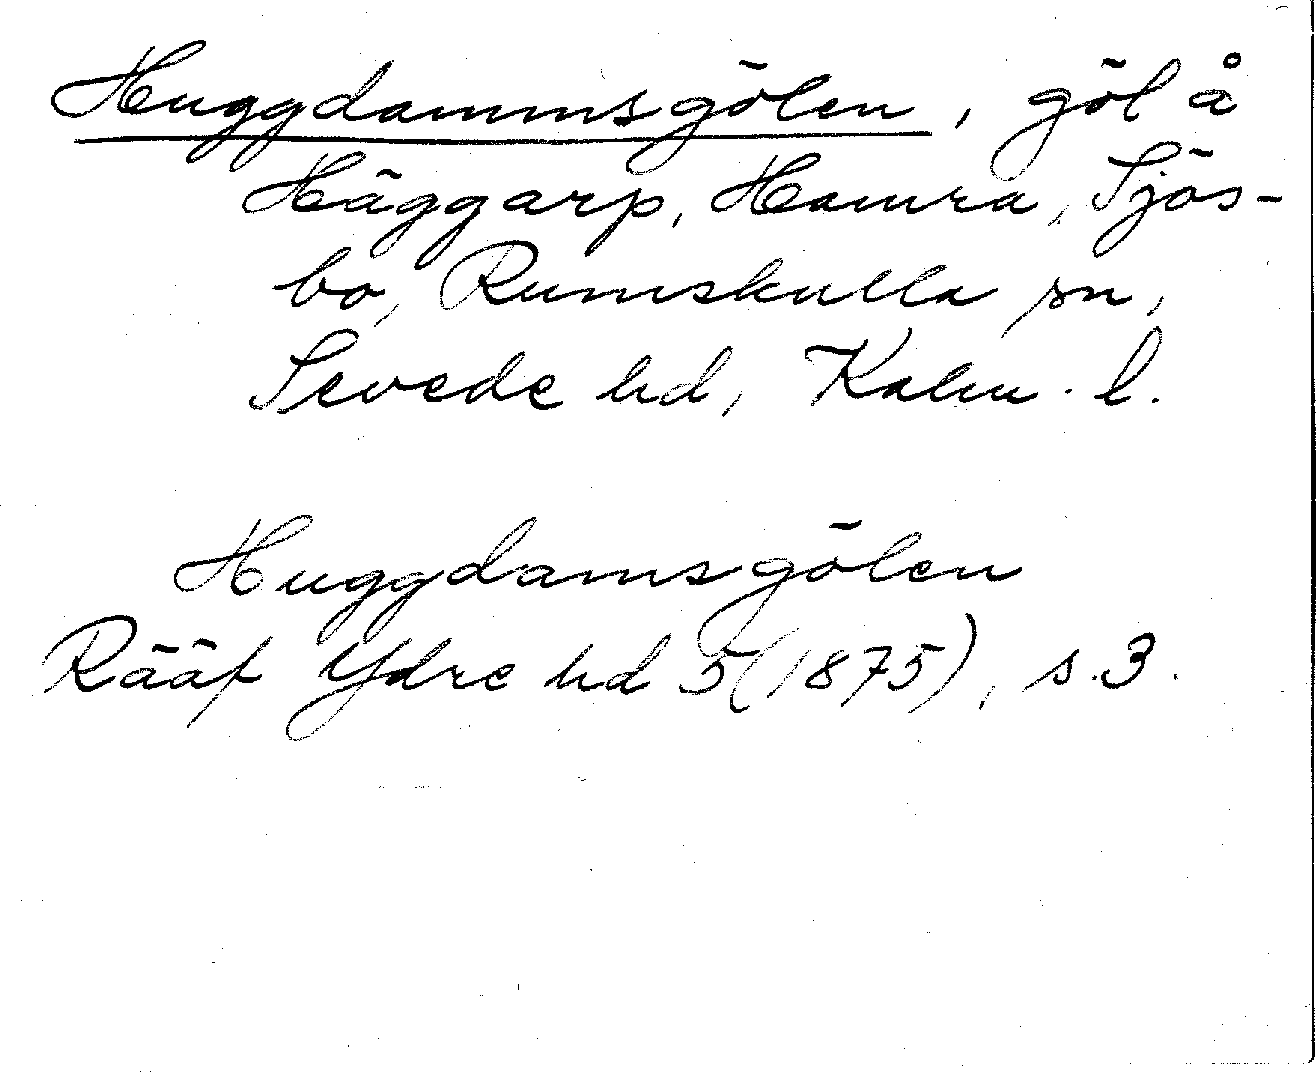 Huggdammsgölen, göl å
Häggarp, Hamra, Sjös-
bo, Rumskulla sn,
Sevede hd, Kalm. l.
Huggdamsgölen
Rääf Ydre hd 5 (1875), s. 3.